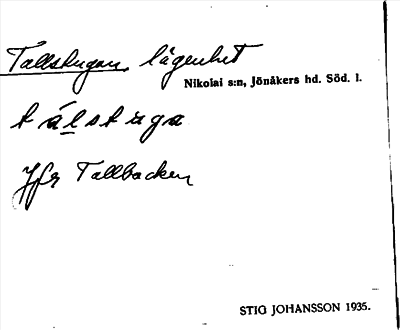 Tallstugan, lägenhet
Nikolai s:n, Jönåkers hd. Söd. l.
tálstuga
Jfr Tallbacken
STIG JOHANSSON 1935.